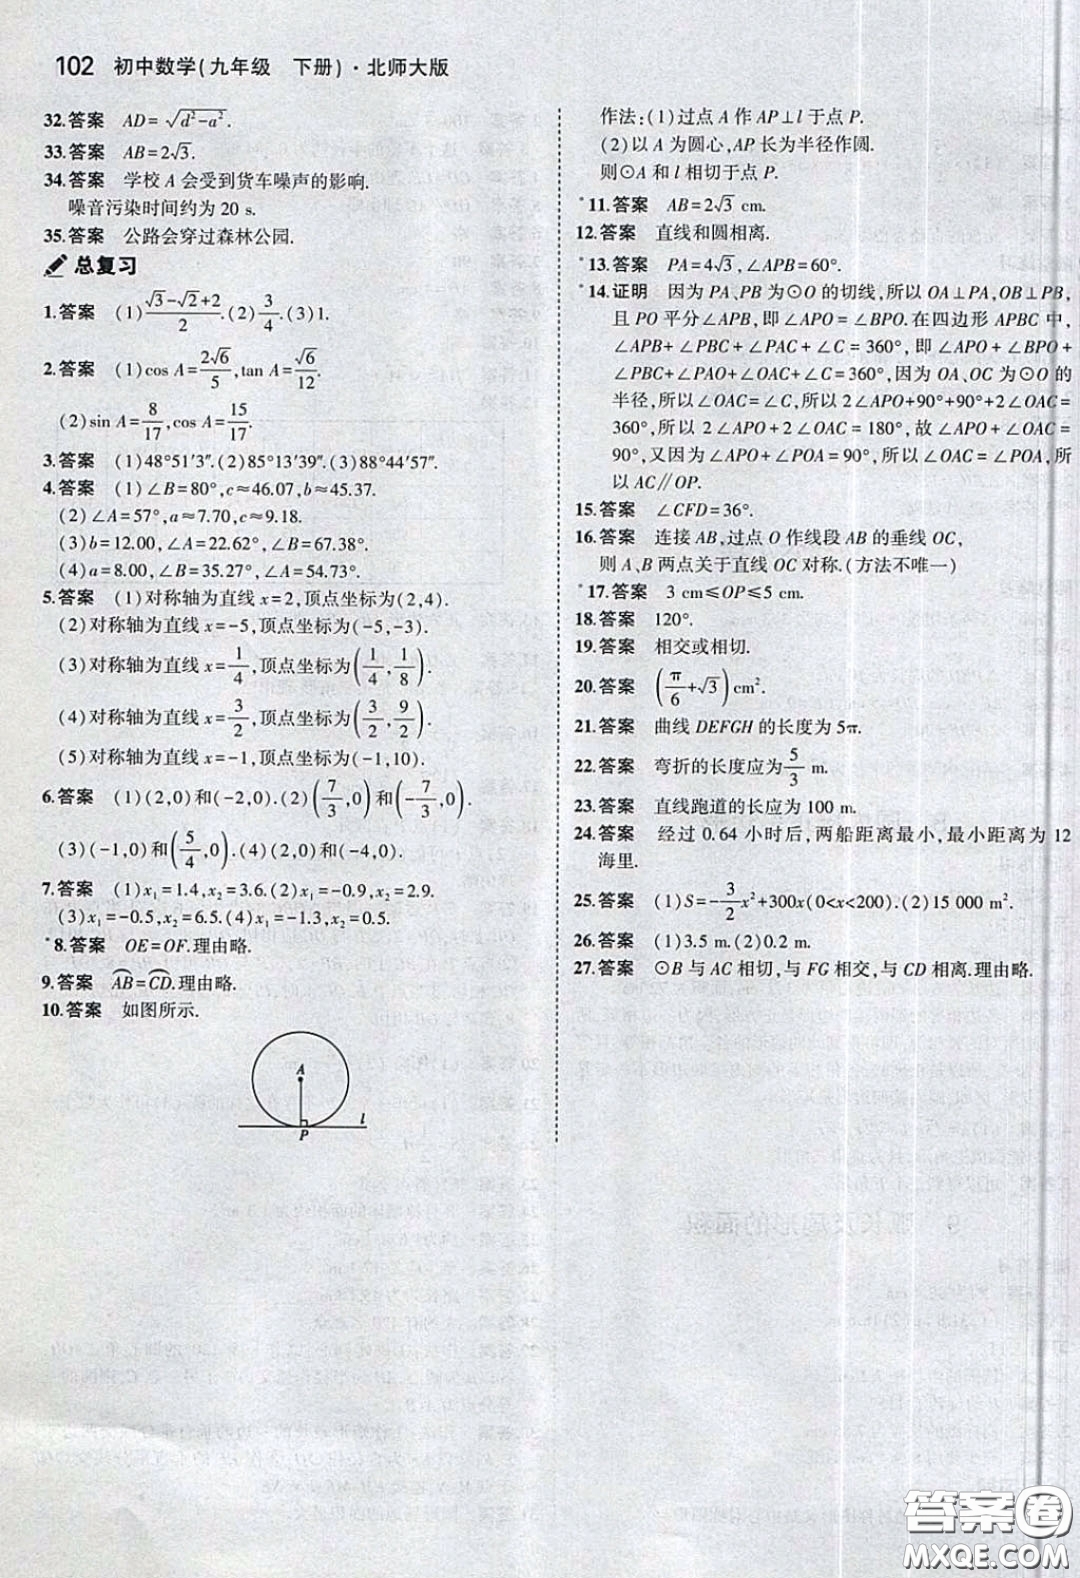 102 初中数学(九年级 下册)·北师大版
32.答案 AD=√(d²-a²).
33.答案 AB=2√3.
34.答案 学校A会受到货车噪声的影响.
噪音污染时间约为20 s.
35.答案 公路会穿过森林公园.
总复习
1.答案 (1)(√3-√2+2)/2.(2)3/4.(3)1.
2.答案 (1)cos A=2√6/5,tan A=√6/12.
(2)sin A=8/17,cos A=15/17.
3.答案 (1)48°51′3″.(2)85°13′39″.(3)88°44′57″.
4.答案 (1)∠B=80°,c≈46.07,b≈45.37.
(2)∠A=57°,a≈7.70,c≈9.18.
(3)b=12.00,∠A≈22.62°,∠B≈67.38°.
(4)a=8.00,∠B≈35.27°,∠A≈54.73°.
5.答案 (1)对称轴为直线x=2,顶点坐标为(2,4).
(2)对称轴为直线x=-5,顶点坐标为(-5,-3).
(3)对称轴为直线x=1/4,顶点坐标为(1/4,1/8).
(4)对称轴为直线x=3/2,顶点坐标为(3/2,9/2).
(5)对称轴为直线x=-1,顶点坐标为(-1,10).
6.答案 (1)(2,0)和(-2,0).(2)(7/3,0)和(-7/3,0).
(3)(-1,0)和(5/4,0).(4)(2,0)和(-4,0).
7.答案 (1)x₁=1.4,x₂=3.6.(2)x₁=-0.9,x₂=2.9.
(3)x₁=-0.5,x₂=6.5.(4)x₁=-3,x₂=0.5.
*8.答案 OE=OF.理由略.
9.答案 A͡B=C͡D.理由略.
10.答案 如图所示.
A
P
l
作法:(1)过点A作AP⊥l于点P.
(2)以A为圆心,AP长为半径作圆.
则⊙A和l相切于点P.
*11.答案 AB=2√3 cm.
12.答案 直线和圆相离.
*13.答案 PA=4√3,∠APB=60°.
*14.证明 因为PA、PB为⊙O的切线,所以OA⊥PA,OB⊥PB,
且PO平分∠APB,即∠APO=∠BPO.在四边形APBC中,
∠APB+∠PBC+∠PAC+∠C=360°,即∠APO+∠BPO+
∠PBC+∠PAO+∠OAC+∠C=360°,因为OA、OC为⊙O的
半径,所以∠OAC=∠C,所以2∠APO+90°+90°+2∠OAC=
360°,所以2∠APO+2∠OAC=180°,故∠APO+∠OAC=
90°,又因为∠APO+∠POA=90°,所以∠OAC=∠POA,所
以AC∥OP.
15.答案 ∠CFD=36°.
16.答案 连接AB,过点O作线段AB的垂线OC,
则A、B两点关于直线OC对称.(方法不唯一)
*17.答案 3 cm≤OP≤5 cm.
18.答案 120°.
19.答案 相交或相切.
20.答案 (π/6+√3)cm².
21.答案 曲线DEFGH的长度为5π.
22.答案 弯折的长度应为5/3 m.
23.答案 直线跑道的长应为100 m.
24.答案 经过0.64小时后,两船距离最小,最小距离为12
海里.
25.答案 (1)S=-3/2x²+300x(0<x<200).(2)15 000 m².
26.答案 (1)3.5 m.(2)0.2 m.
27.答案 ⊙B与AC相切,与FG相交,与CD相离.理由略.
答案圈
MXQE.COM